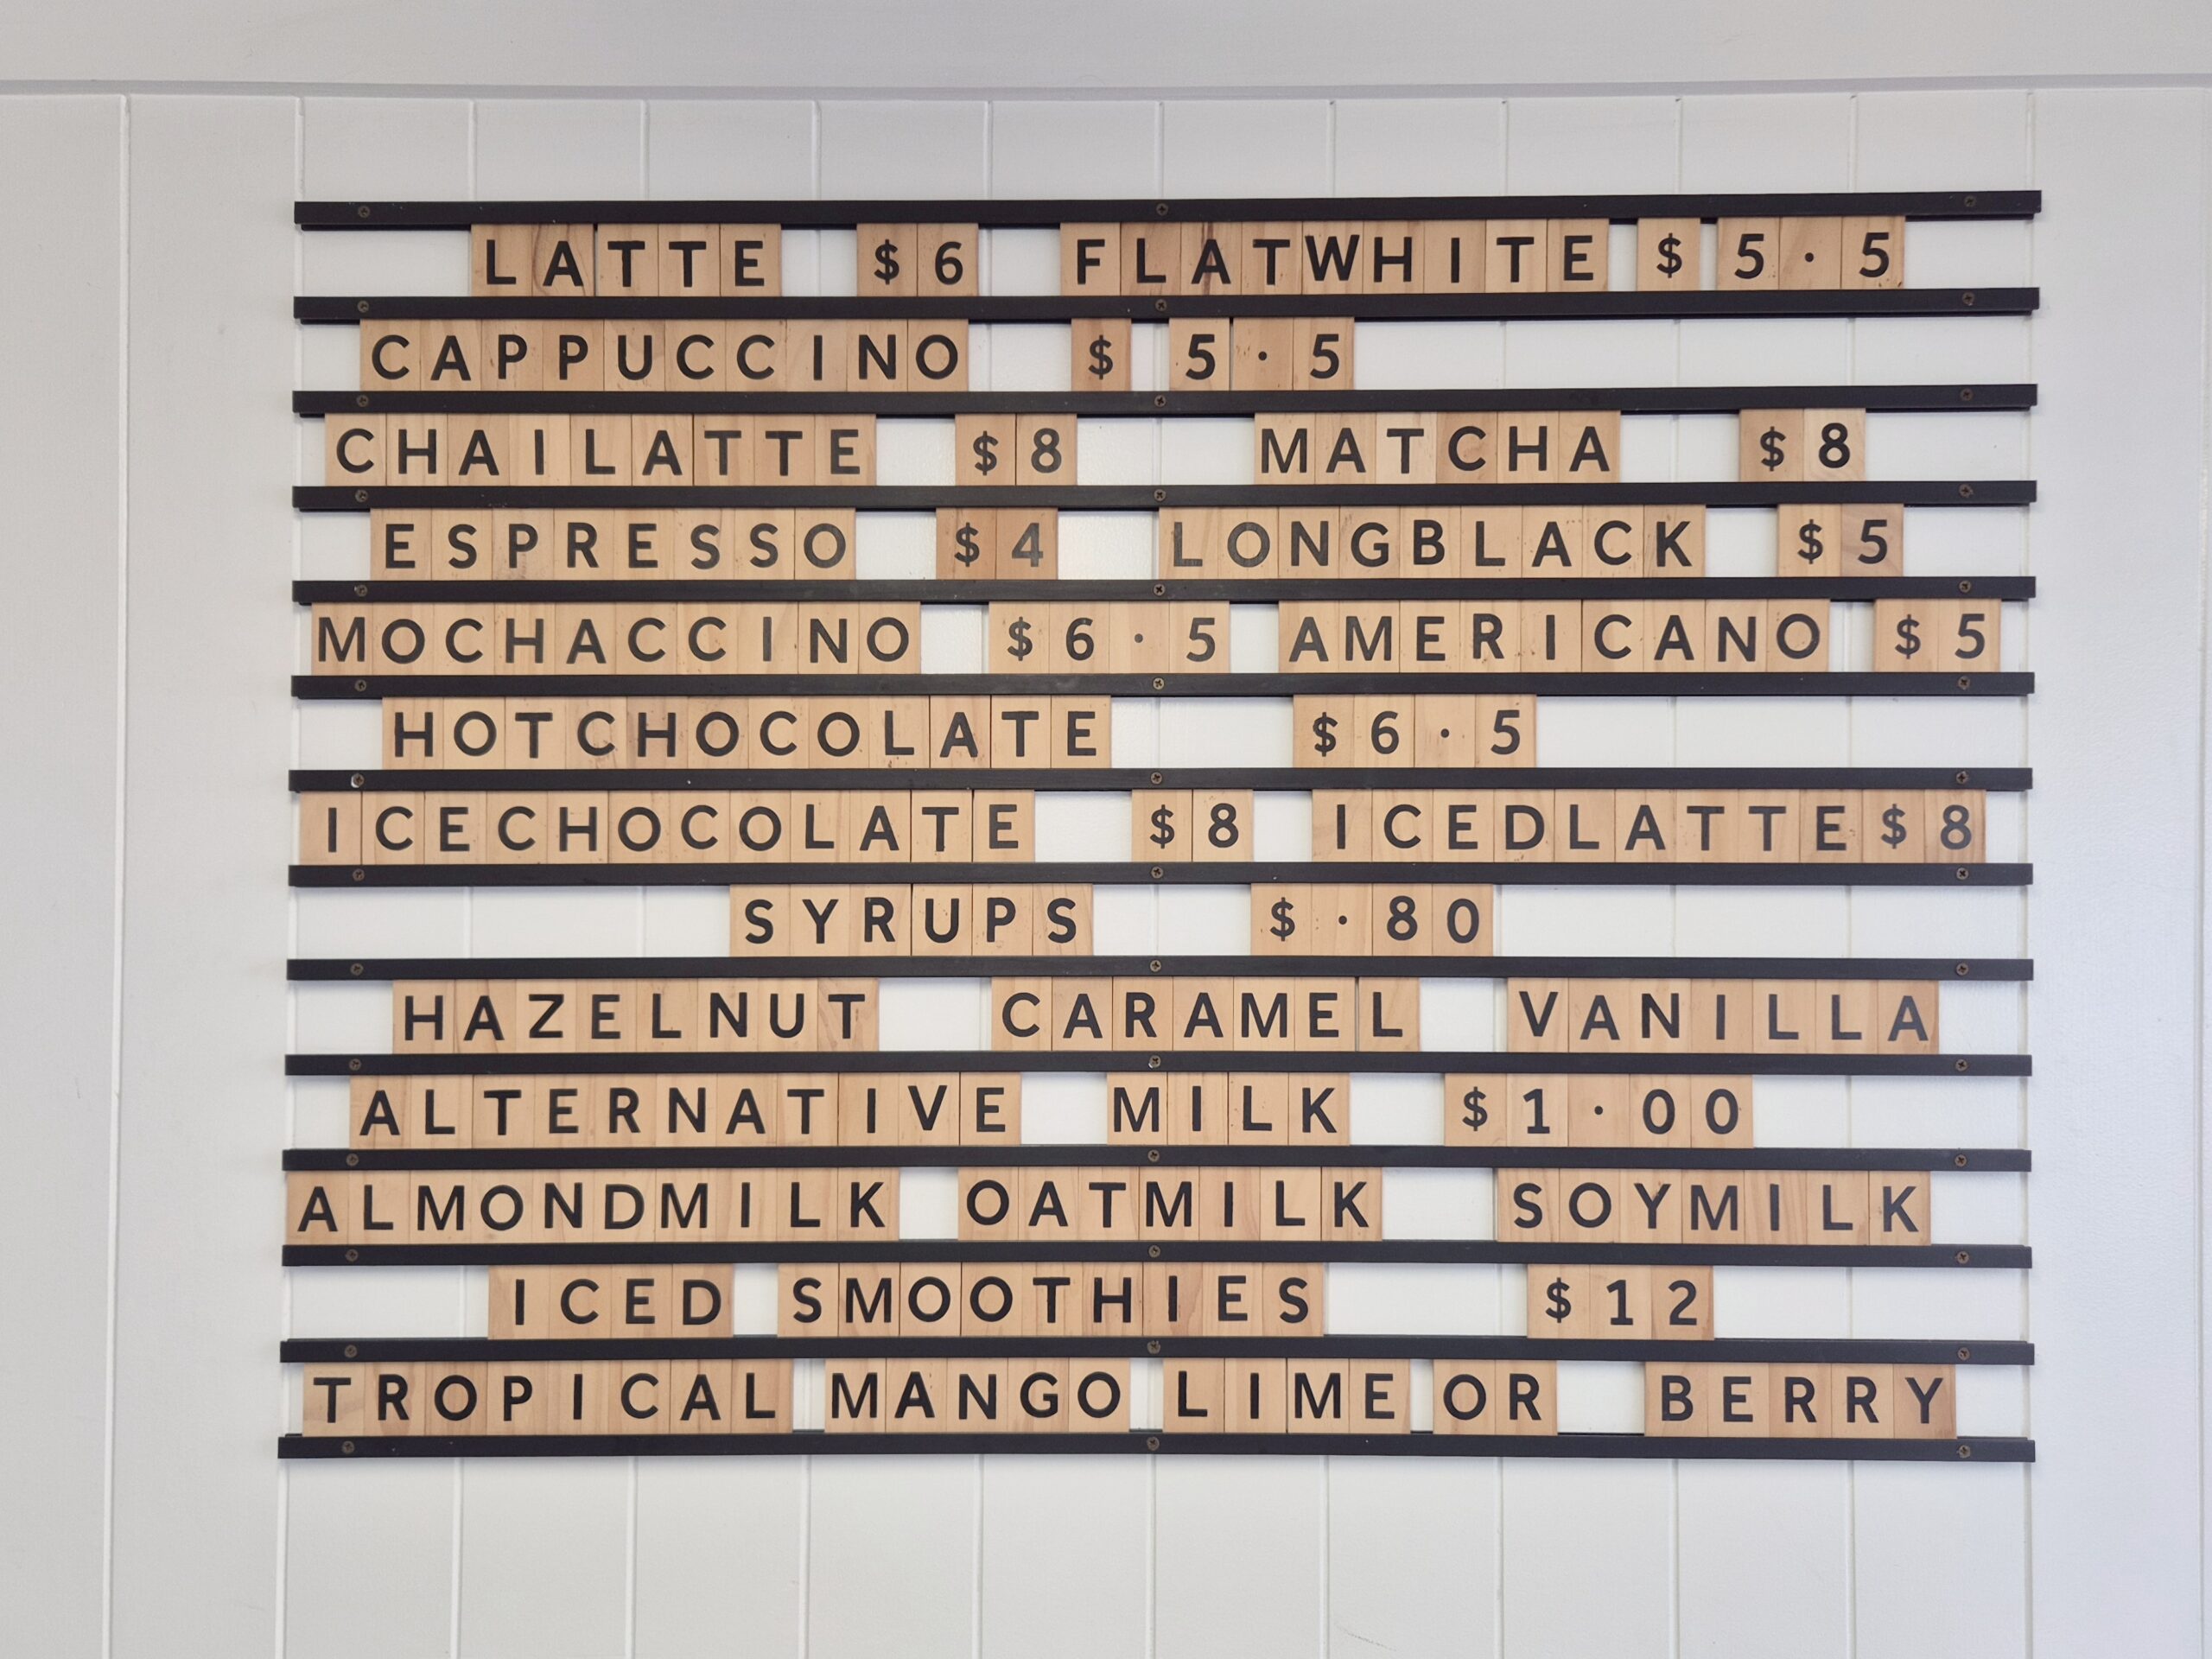 LATTE $6 FLATWHITE $5·5
CAPPUCCINO $5·5
CHAILATTE $8 MATCHA $8
ESPRESSO $4 LONGBLACK $5
MOCHACCINO $6·5 AMERICANO $5
HOTCHOCOLATE $6·5
ICECHOCOLATE $8 ICEDLATTE$8
SYRUPS $·80
HAZELNUT CARAMEL VANILLA
ALTERNATIVE MILK $1·00
ALMONDMILK OATMILK SOYMILK
ICED SMOOTHIES $12
TROPICAL MANGO LIME OR BERRY